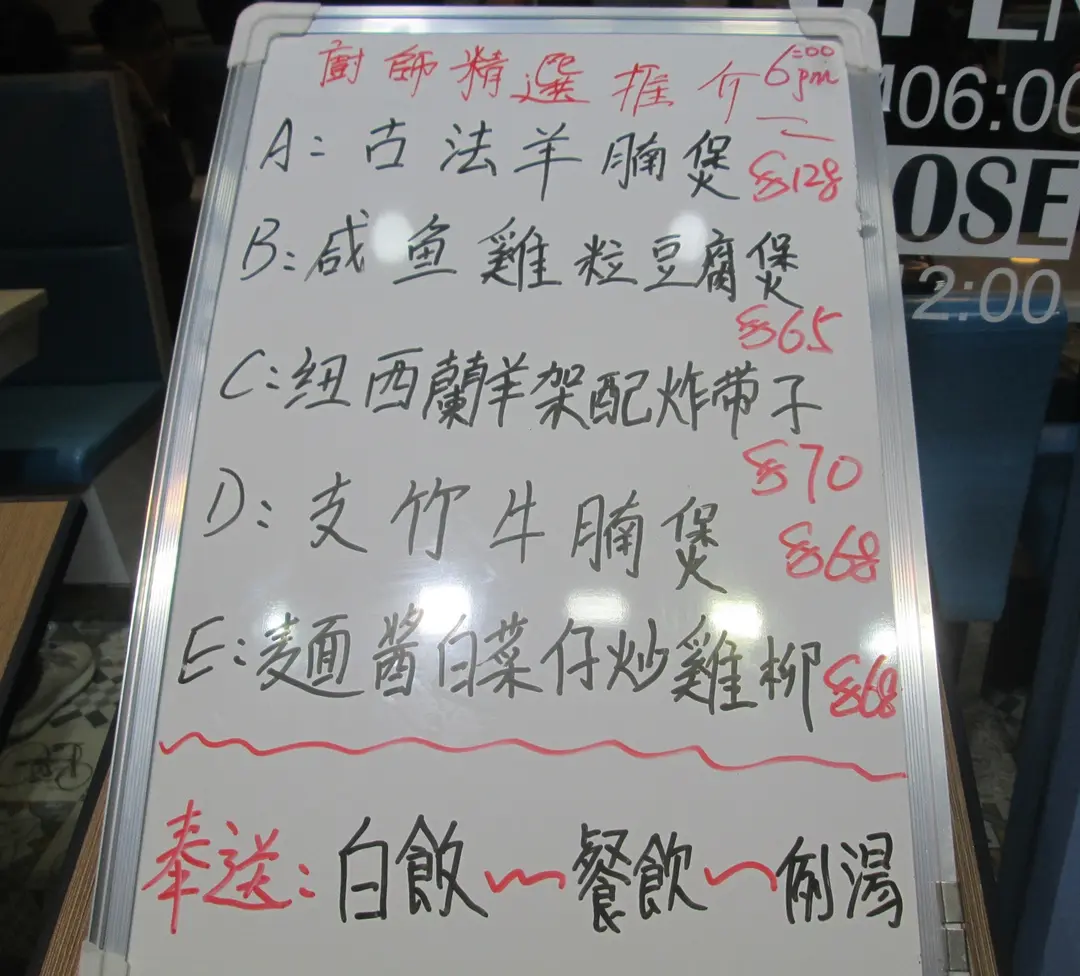 廚師精選推介 6:00pm
A: 古法羊腩煲 $128
B: 咸鱼雞粒豆腐煲
$65
C: 纽西蘭羊架配炸带子
$70
D: 支竹牛腩煲 $68
E: 麵醬白菜仔炒雞柳 $68
奉送: 白飯～餐飲～例湯
OPEN
06:00
OSE
2:00